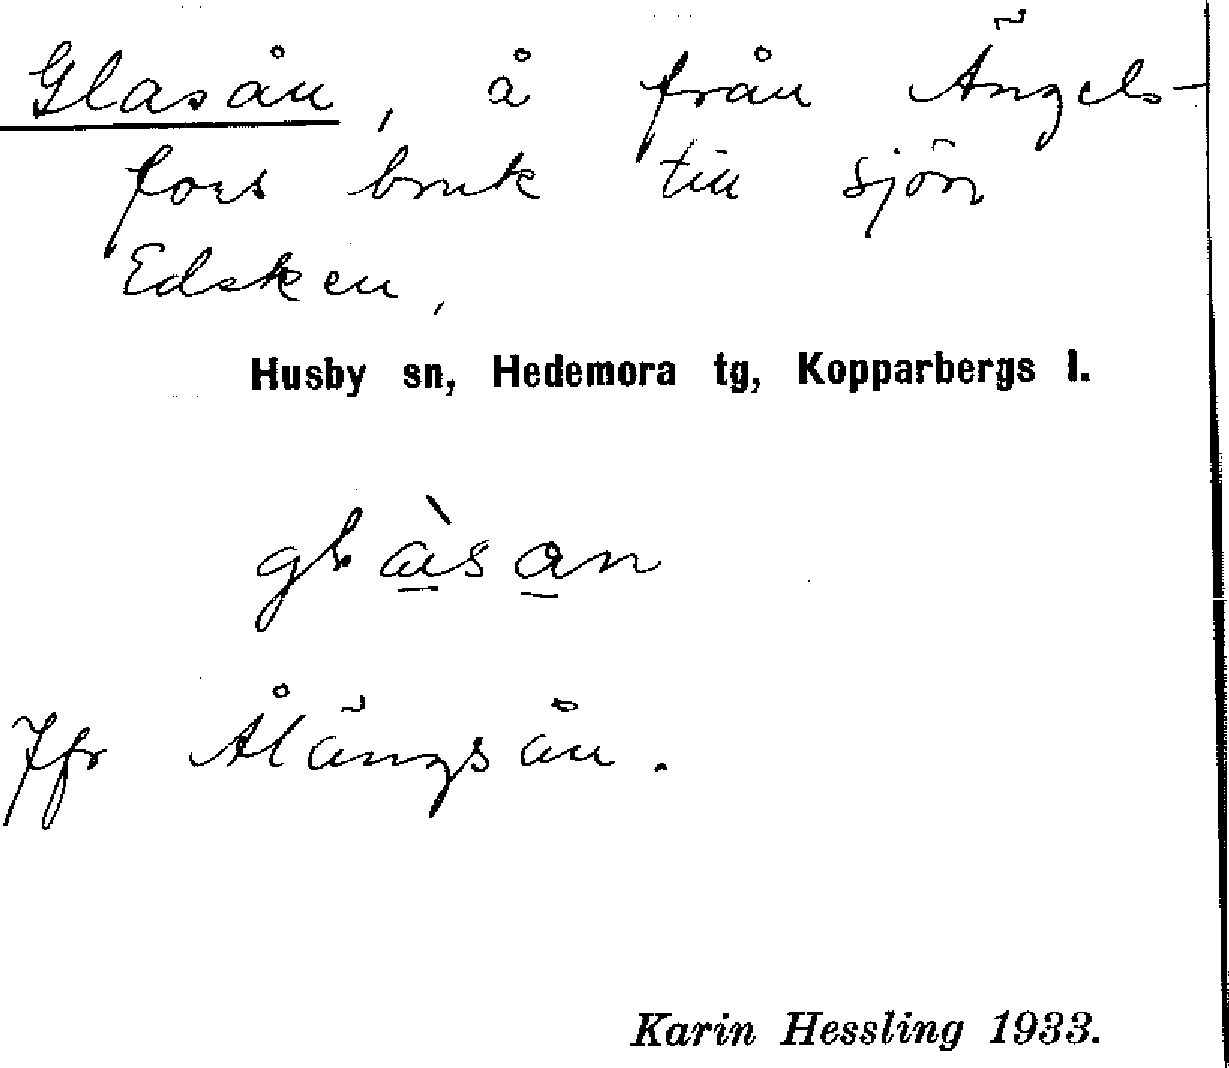 Glasån, å från Ängels-
fors bruk till sjön
Edsken,
Husby sn, Hedemora tg, Kopparbergs l.
Jfr Ålängsån.
Karin Hessling 1933.